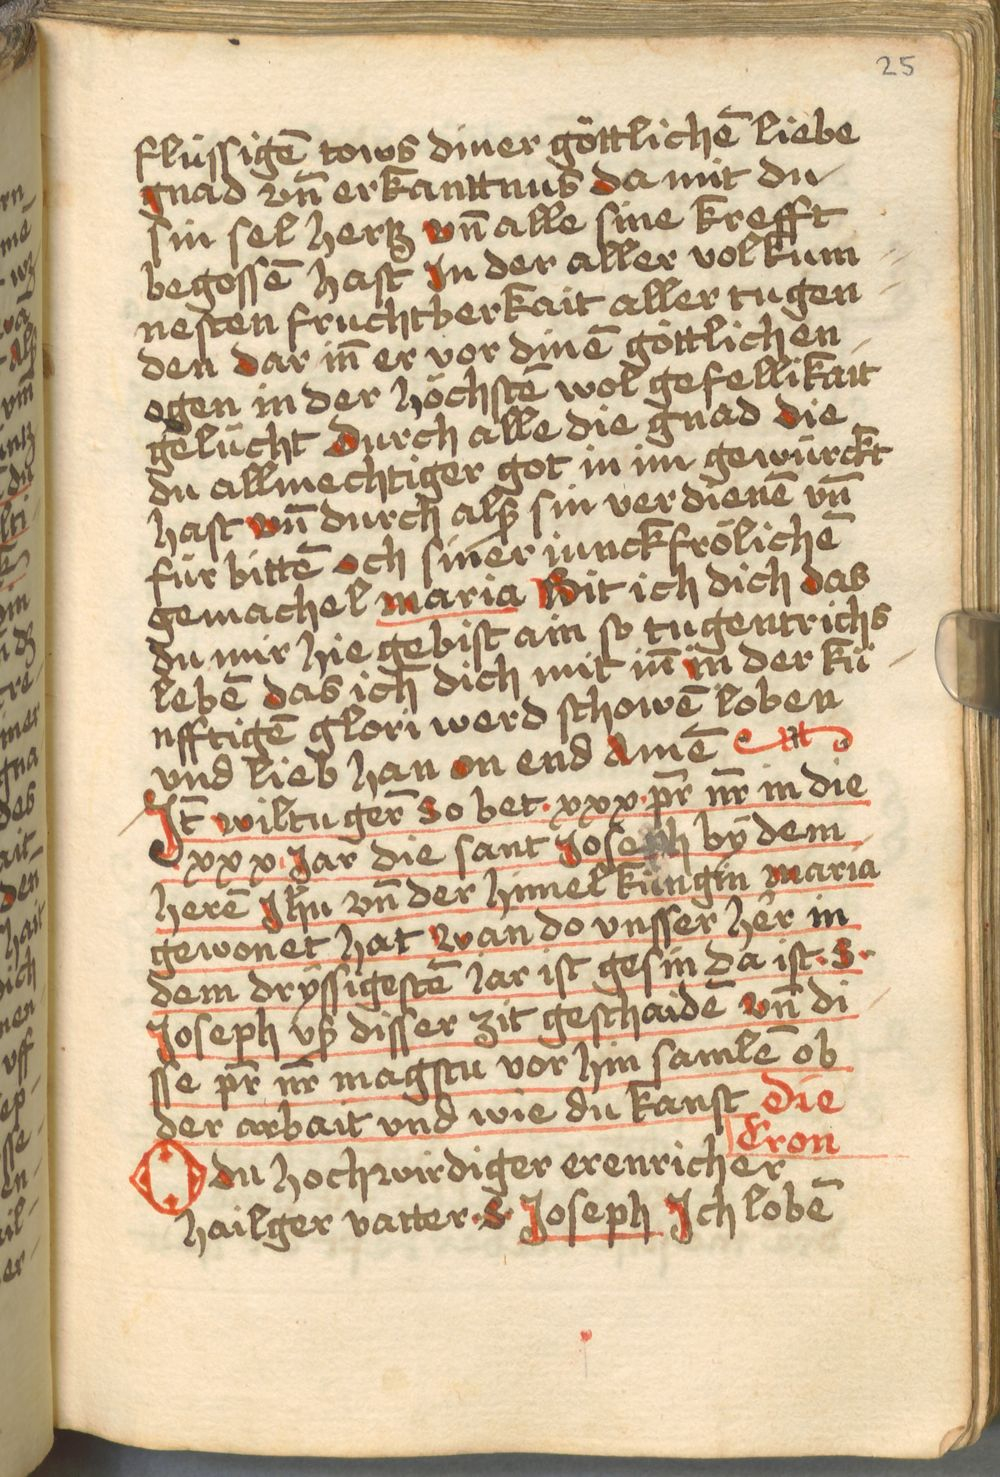 25
flüssigē tows diner göttlichē liebe
gnad vn̄ erkanttnus da mit du
sin sel hertz vn̄ alle sine krefft
begossē hast In der aller volkum
nesten fruchtberkait aller tugen
den dar in̄ er vor dinē göttlichen
ogen in der höchstē wol gefellikait
gelücht Durch alle die gnad die
du allmechtiger got in im gewürckt
hast vn̄ durch alß sin verdienē vn̄
für bittē och siner iunckfrölichē
gemachel maria Bit ich dich das
du mir hie gebist ain so tugentrichs
lebē das ich dich mit in̄ in der kü
nfftigē glori werd schowē loben
vnd lieb han on end Amē
It̄ wiltu ger̄ so bet · xxx · pr̄ nr̄ in die
xxx · Jar die sant Joseph bÿ dem
herē Jhu vn̄ der himel küngin maria
gewonet hat wan do vnsser her in
dem drÿssigestē Jar ist gesin da ist · S ·
Joseph vß disser zit geschaidē vn̄ di
sse pr̄ nr̄ magstu vor hin samlē ob
der arbait vnd wie du kanst die
Cron
O du hochwirdiger erenricher
hailger vatter · S · Joseph Ich lobē